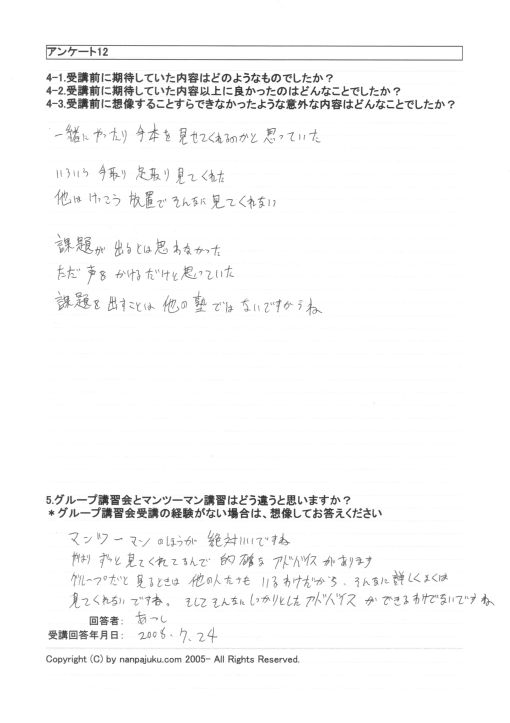 アンケート12
4-1.受講前に期待していた内容はどのようなものでしたか？
4-2.受講前に期待していた内容以上に良かったのはどんなことでしたか？
4-3.受講前に想像することすらできなかったような意外な内容はどんなことでしたか？
一緒にやったり手本を見せてくれるのかと思っていた
いろいろ手取り足取り見てくれた
他はけっこう放置でそんなに見てくれない
課題が出るとは思わなかった
ただ声をかけるだけと思っていた
課題を出すことは他の塾ではないですからね
5.グループ講習会とマンツーマン講習はどう違うと思いますか？
＊グループ講習会受講の経験がない場合は、想像してお答えください
マンツーマンのほうが絶対いいですね
やはりずっと見てくれてるんで的確なアドバイスがあります
グループだと見るときは他の人たちもいるわけだから、そんなに詳しくよくは
見てくれないですね。そしてそんなにしっかりとしたアドバイスができるわけでないですね
回答者： あつし
受講回答年月日： 2008.7.24
Copyright (C) by nanpajuku.com 2005- All Rights Reserved.